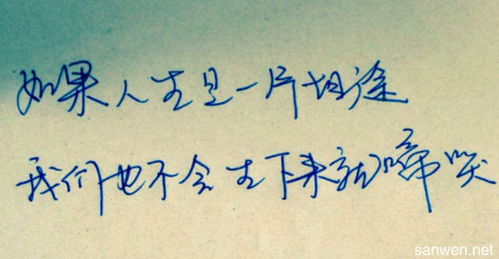 如果人生是一片坦途
我们也不会生下来就啼哭
sanwen.net